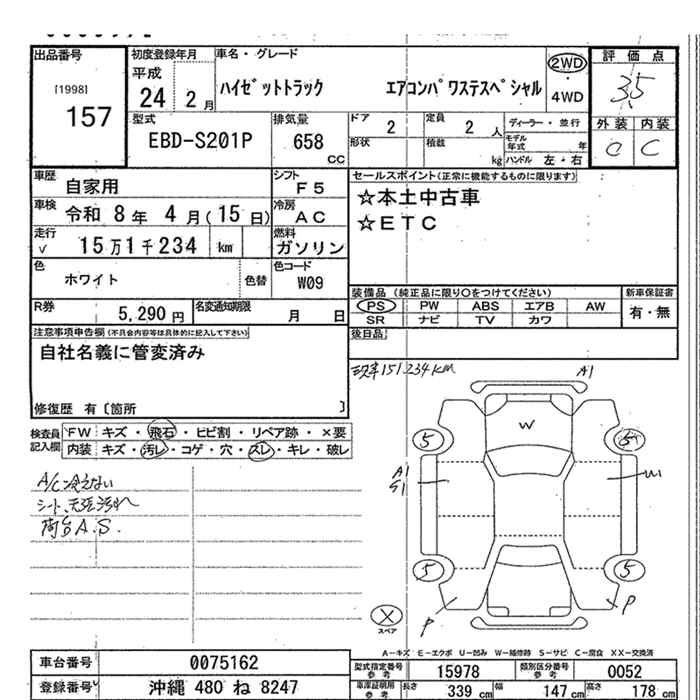 出品番号
[1998]
157
初度登録年月
平成
24 2月
車名・グレード
ハイゼットトラック エアコンパワステスペシャル
2WD
4WD
評価点
3.5
外装 内装
C C
型式
EBD-S201P
排気量
658
CC
ドア 2
定員 2 人
形状
積載 kg
ディーラー・並行
モデル年式 年
ハンドル 左・右
車歴 自家用
シフト F5
車検 令和 8年 4月(15日)
冷房 AC
走行 √ 15万1千234 km
燃料 ガソリン
色 ホワイト
色替
色コード W09
R券 5,290円
名変通知期限 月 日
セールスポイント(正常に機能するものに限ります)
☆本土中古車
☆ETC
装備品(純正品に限り○をつけてください)
新車保証書
PS PW ABS エアB AW
SR ナビ TV カワ
有・無
後日品
注意事項申告欄(不具合内容等は具体的に記入して下さい)
自社名義に管変済み
修復歴 有〔箇所 〕
検査員記入欄
FW キズ・飛石・ヒビ割・リペア跡・×要
内装 キズ・汚レ・コゲ・穴・スレ・キレ・破レ
A/C冷えない
シート、天張汚れ
A.S.
151.234km
A1
W
5
5
A1
S1
W1
5
5
P
P
X
スペア
A-キズ E-エクボ U-凹み W-補修跡 S-サビ C-腐食 XX-交換済
車台番号 0075162
型式指定番号 参考 15978
類別区分番号 参考 0052
登録番号 沖縄 480 ね 8247
車庫証明用 参考 長さ 339 cm 幅 147 cm 高さ 178 cm